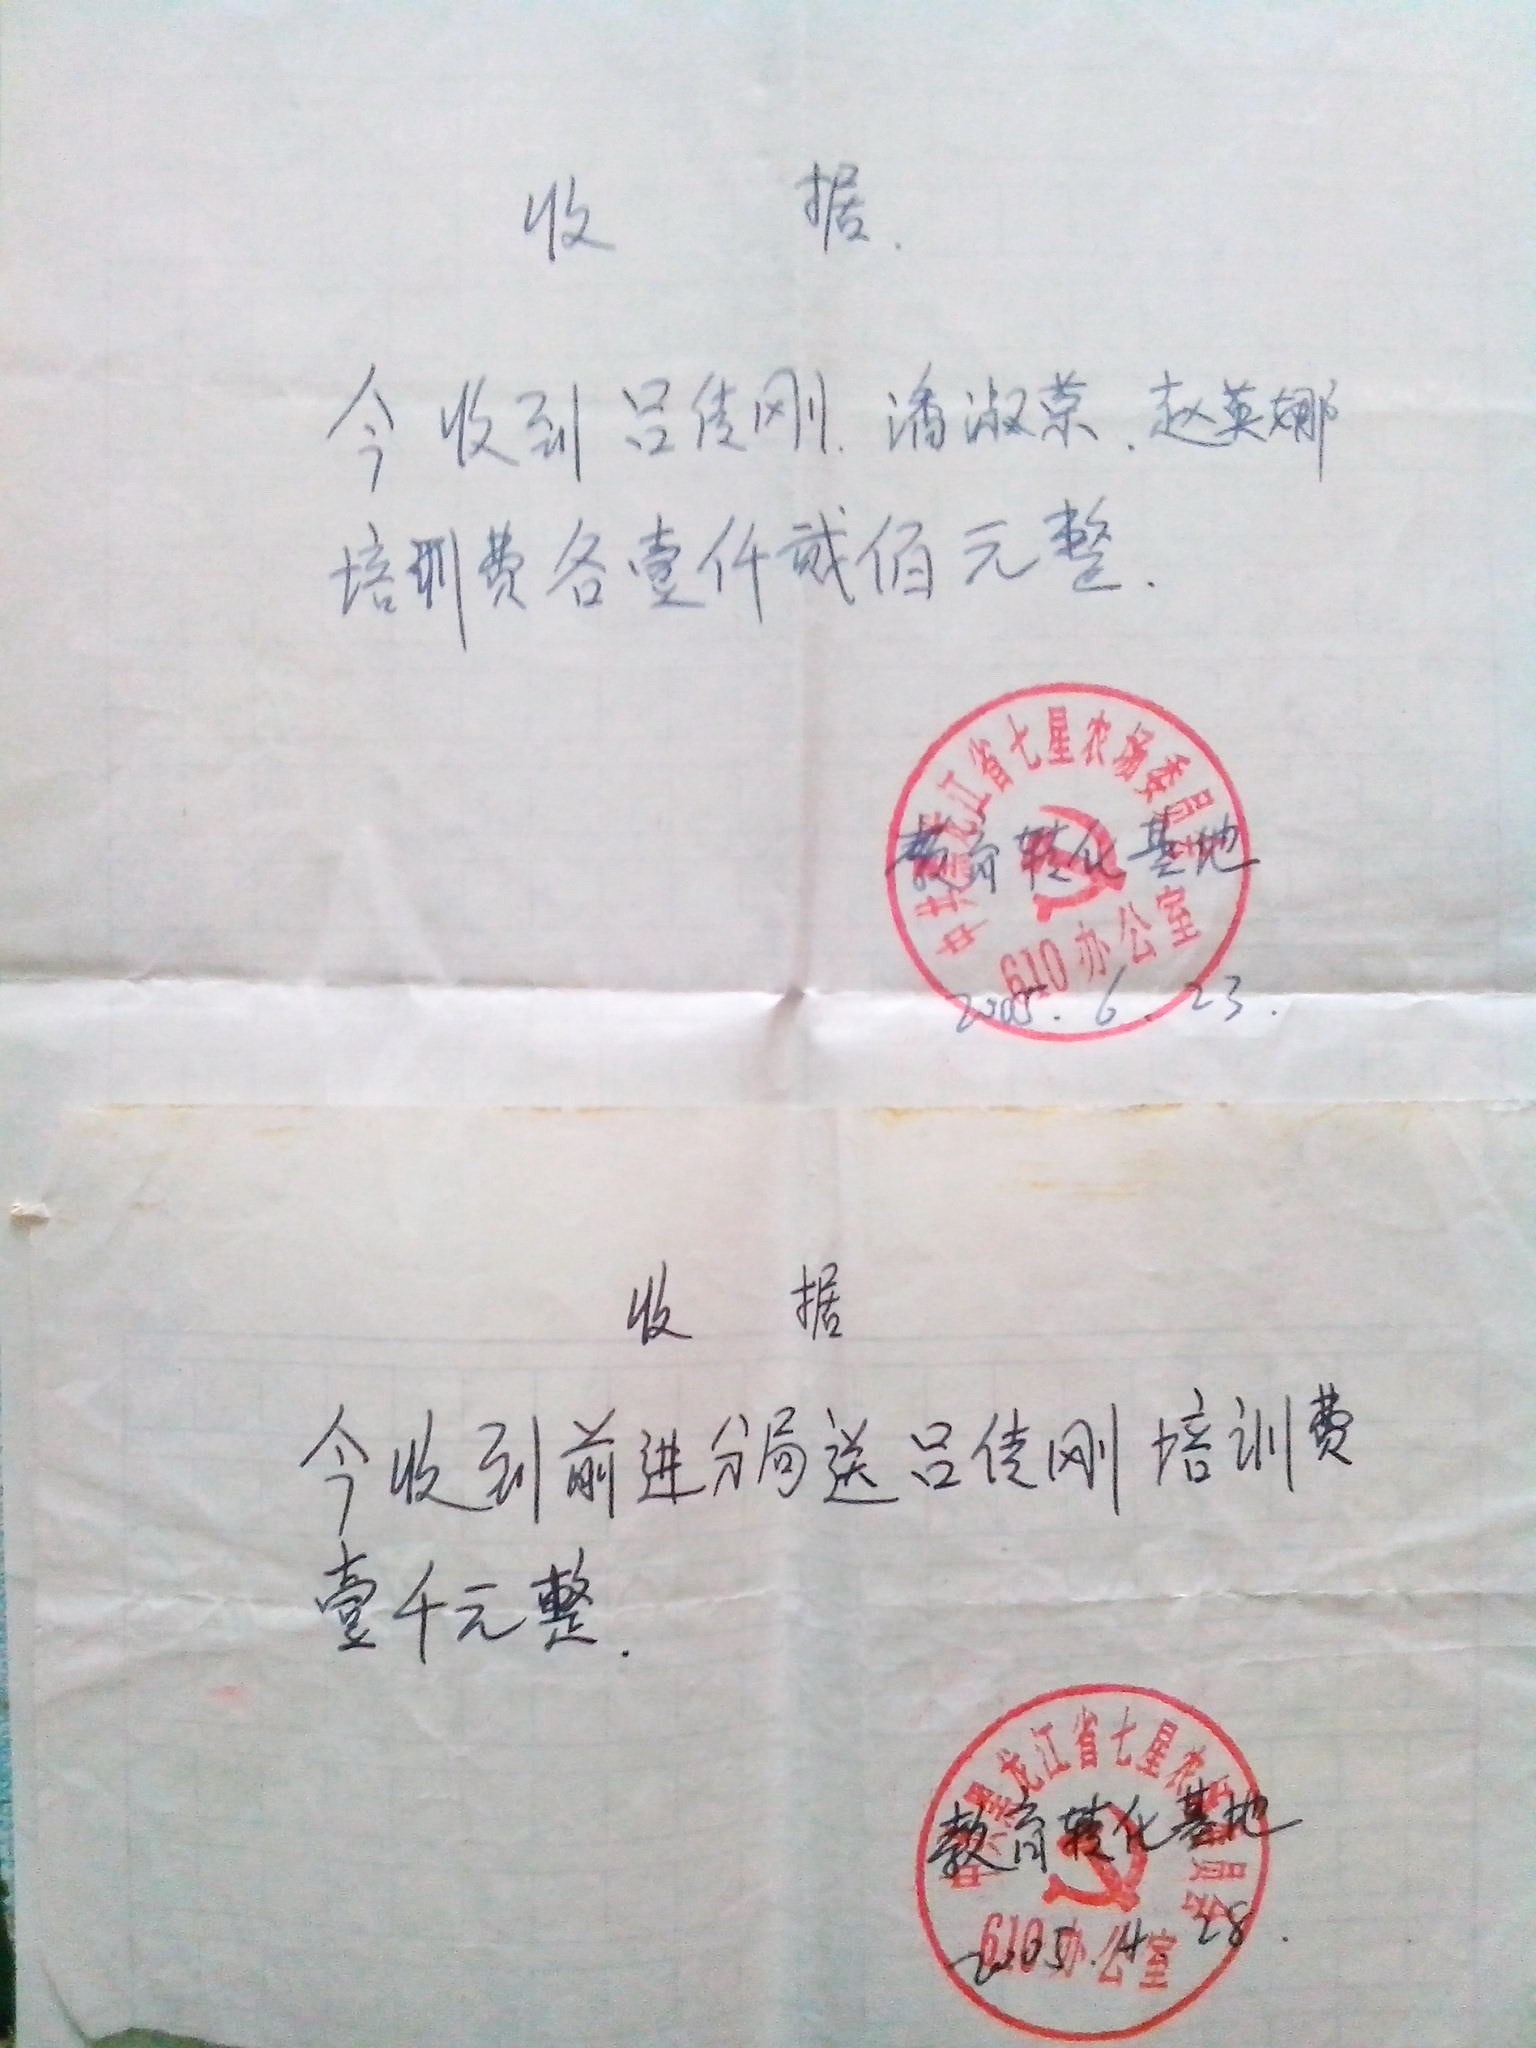 收 据.
今收到吕佳刚.潘淑荣.赵英娜
培训费各壹仟贰佰元整.
中共黑龙江省七星农场委员会
教育转化基地
610办公室
2005.6.23.
收 据
今收到前进分局送吕佳刚培训费
壹千元整.
中共黑龙江省七星农场委员会
教育转化基地
610办公室
2005.4.28.